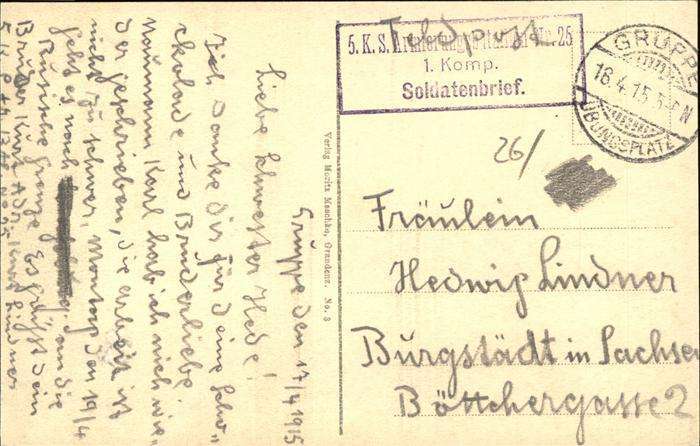 Feldpost
5. K. S. Armierungs-Bataillon Nr. 25
1. Komp.
Soldatenbrief.
GRUPPE
18.4.15.
ÜBUNGSPLATZ
26/
Fräulein
Hedwig Lindner
Burgstädt in Sachse
Böttchergasse 2
Verlag Moritz Maschke, Graudenz. No. 3
Gruppe den 17/4 1915
Liebe Schwester Hede!
Ich Danke dir für deine Scho„
ckolade und Brüderliebe.
Naumann Karl hab ich auch wie„
der geschrieben, die arbeit ist
nicht zu schwer, Montag den 19/4
geht es noch an die
Rusische Grenze Es grüßt dein
Bruder Kurt Adr. Kurt Lindner